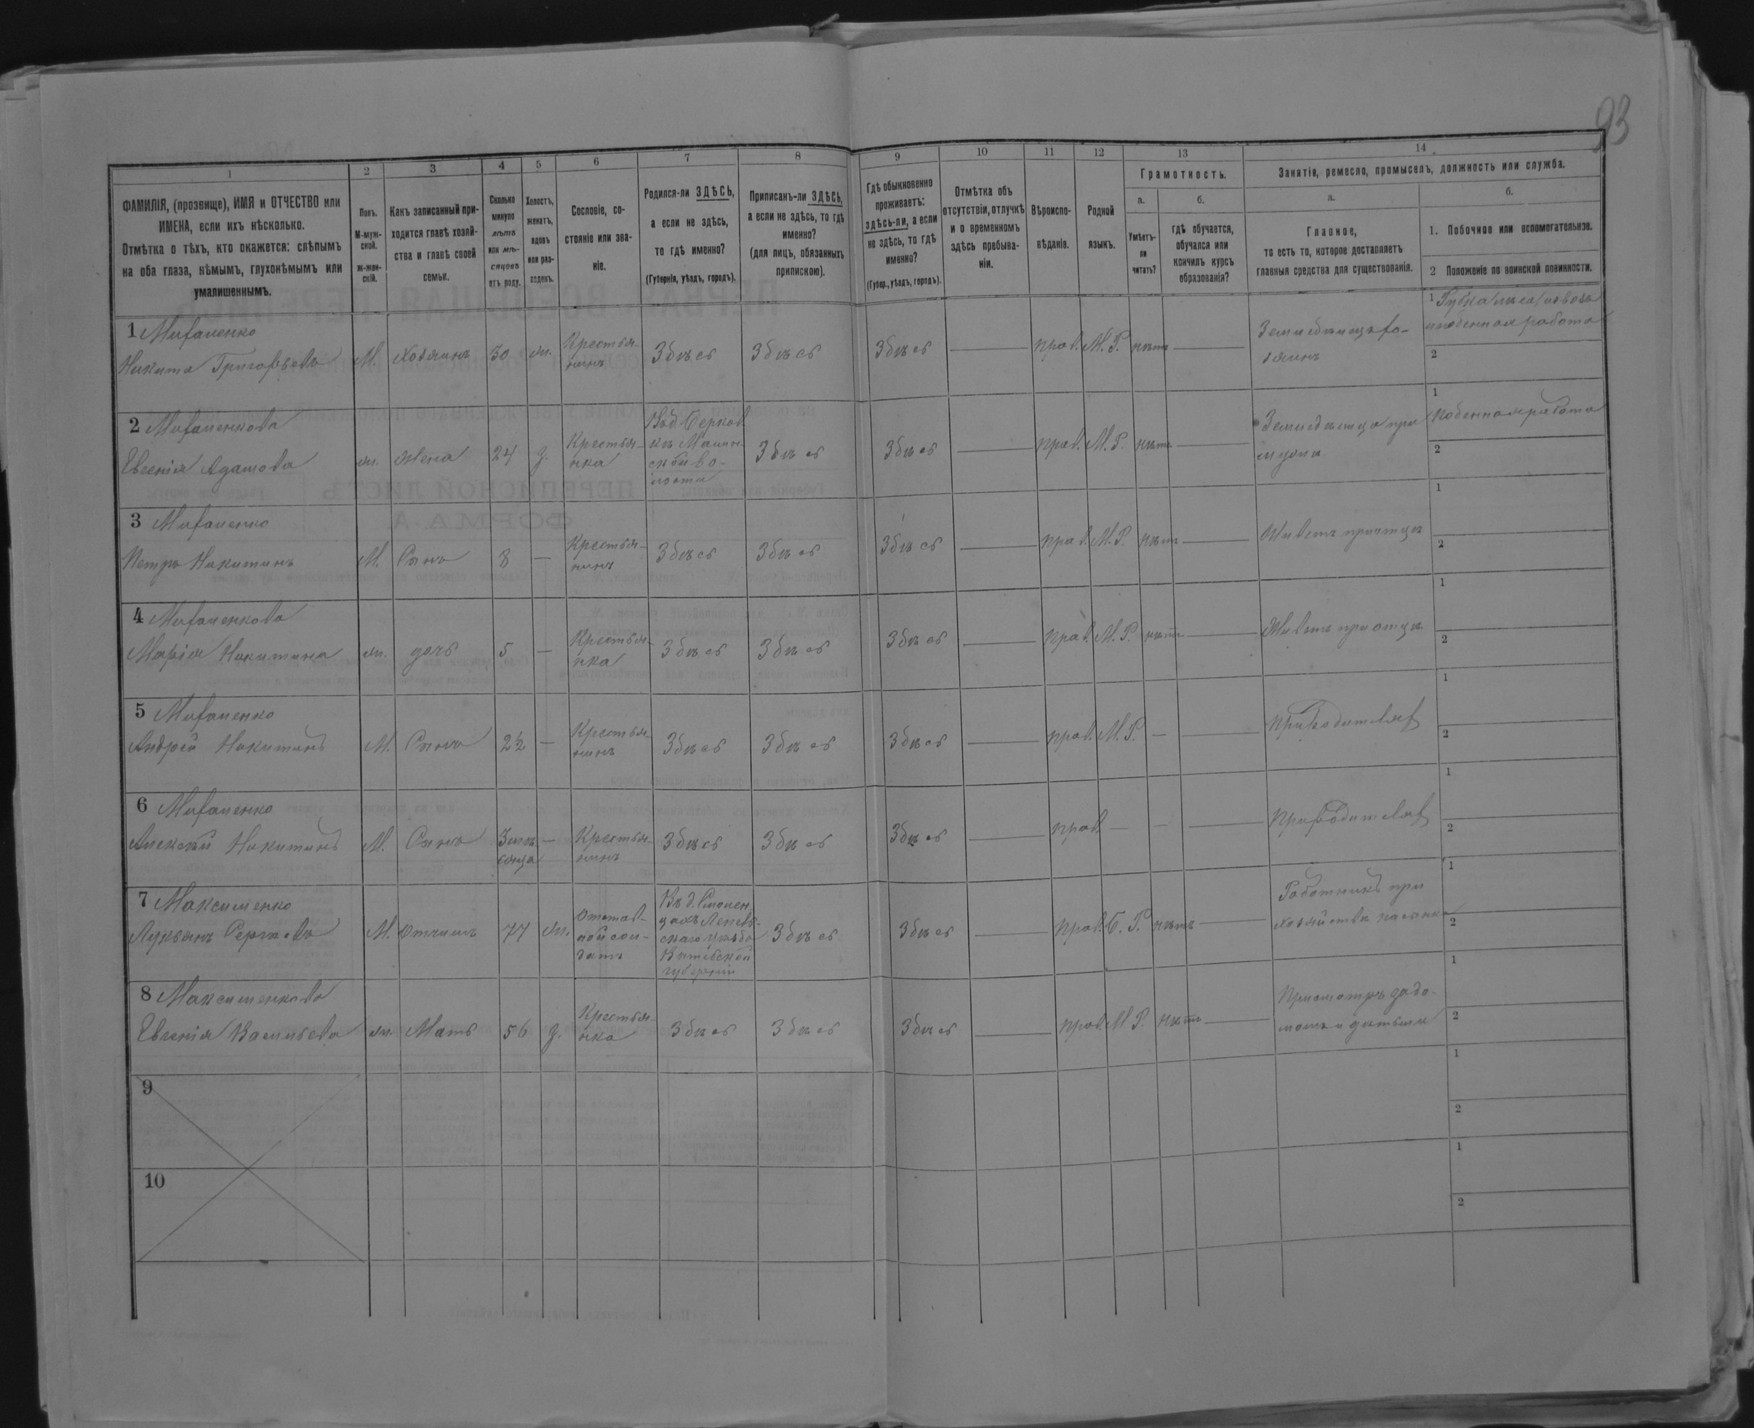 93
1
2
3
4
5
6
7
8
9
10
11
12
13
14
ФАМИЛІЯ, (прозвище), ИМЯ и ОТЧЕСТВО или
ИМЕНА, если ихъ нѣсколько.
Отмѣтка о тѣхъ, кто окажется: слѣпымъ
на оба глаза, нѣмымъ, глухонѣмымъ или
умалишеннымъ.
Полъ.
М-муж-
ской.
ж-жен-
скій.
Какъ записанный при-
ходится главѣ хозяй-
ства и главѣ своей
семьи.
Сколько
минуло
лѣтъ
или мѣ-
сяцевъ
отъ роду.
Холостъ,
женатъ,
вдовъ
или раз-
веденъ.
Сословіе, со-
стояніе или зва-
ніе.
Родился-ли ЗДѢСЬ,
а если не здѣсь,
то гдѣ именно?
(Губернія, уѣздъ, городъ).
Приписанъ-ли ЗДѢСЬ,
а если не здѣсь, то гдѣ
именно?
(для лицъ, обязанныхъ
припискою).
Гдѣ обыкновенно
проживаетъ:
здѣсь-ли, а если
не здѣсь, то гдѣ
именно?
(Губер., уѣздъ, городъ).
Отмѣтка объ
отсутствіи, отлучкѣ
и о временномъ
здѣсь пребыва-
ніи.
Вѣроиспо-
вѣданіе.
Родной
языкъ.
Грамотность.
а.
Умѣетъ-
ли
читать?
б.
гдѣ обучается,
обучался или
кончилъ курсъ
образованія?
Занятіе, ремесло, промыселъ, должность или служба.
а.
Главное,
то есть то, которое доставляетъ
главныя средства для существованія.
б.
1. Побочное или вспомогательное.
2 Положеніе по воинской повинности.
1
Никита Григорьевъ М. Хозяинъ 30 ж. Крестья-
нинъ Здѣсь Здѣсь Здѣсь прав. М. Р. нѣтъ
1
поденная работа
2
2
Евгенія ж. жена 24 з. Крестья-
нка Здѣсь Здѣсь прав. М. Р. нѣтъ
1 поденная работа
2
3
Петръ Никитинъ М. Сынъ 8 — Крестья-
нинъ Здѣсь Здѣсь Здѣсь прав. М. Р. нѣтъ Живетъ при отцѣ
1
2
4
Марія Никитина ж. дочь 5 — Крестья-
нка Здѣсь Здѣсь Здѣсь прав. М. Р. нѣтъ Живетъ при отцѣ
1
2
5
Андрей Никитинъ М. Сынъ 2½ — Крестья-
нинъ Здѣсь Здѣсь Здѣсь прав. М. Р. —
1
2
6
Алексѣй Никитинъ М. Сынъ 3 мѣ-
сяца — Крестья-
нинъ Здѣсь Здѣсь Здѣсь прав. —
1
2
7 Максименко
М. Отчимъ 77 ж. Отстав-
ной сол-
датъ
Витебской
губерніи Здѣсь Здѣсь прав. Б. Р. нѣтъ
Работникъ при
хозяйствѣ пасынка
1
2
8 Максименкова
Евгенія Васильева ж. Мать 56 з. Крестья-
нка Здѣсь Здѣсь Здѣсь прав. М. Р. нѣтъ
Присмотръ за до-
момъ и дѣтьми
1
2
9
1
2
10
1
2